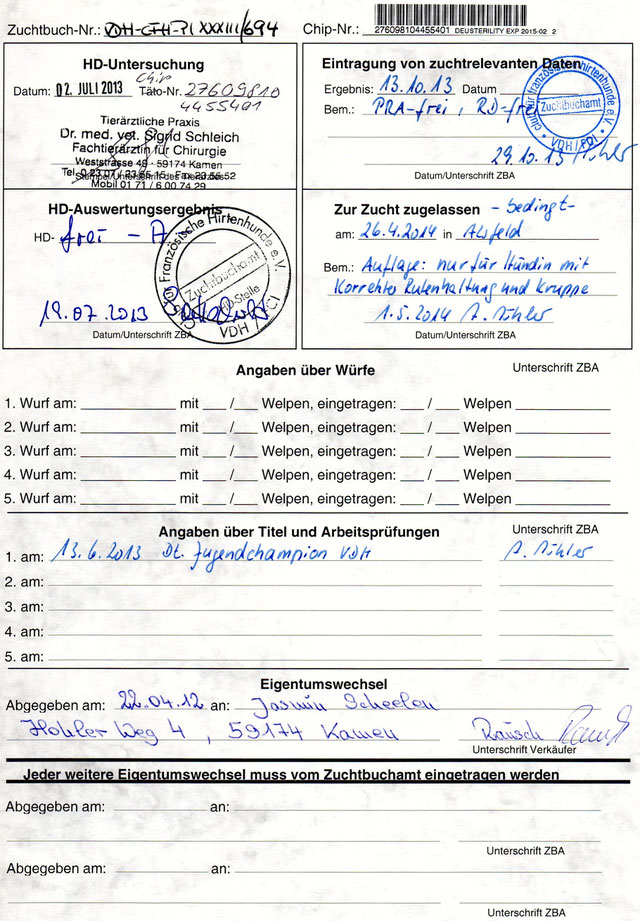 Zuchtbuch-Nr.: VDH-CFH-PI XXXIII/694
Chip-Nr.: 276098104455401 DEUSTERILITY EXP 2015-02 2
HD-Untersuchung
Datum: 02. JULI 2013 Chip Täto-Nr. 27609810
4455401
Tierärztliche Praxis
Dr. med. vet. Sigrid Schleich
Fachtierärztin für Chirurgie
Weststrasse 49 - 59174 Kamen
Stempel/Unterschrift des Tierarztes
Mobil 01 71 / 6 00 74 29
Eintragung von zuchtrelevanten Daten
Ergebnis: 13.10.13 Datum
Bem.: PRA-frei, RD-frei
29.10.13
Datum/Unterschrift ZBA
Club für französische Hirtenhunde e.V.
Zuchtbuchamt
VDH / FCI
HD-Auswertungsergebnis
HD- frei - A
19.07.2013
Datum/Unterschrift ZBA
Club für Französische Hirtenhunde e.V.
Zuchtbuchamt
HD-Stelle
VDH / FCI
Zur Zucht zugelassen - bedingt-
am: 26.4.2014 in Alsfeld
Bem.: Auflage: nur für Hündin mit
korrekter Rutenhaltung und Kruppe
1.5.2014
Datum/Unterschrift ZBA
Angaben über Würfe Unterschrift ZBA
1. Wurf am: mit / Welpen, eingetragen: / Welpen
2. Wurf am: mit / Welpen, eingetragen: / Welpen
3. Wurf am: mit / Welpen, eingetragen: / Welpen
4. Wurf am: mit / Welpen, eingetragen: / Welpen
5. Wurf am: mit / Welpen, eingetragen: / Welpen
Angaben über Titel und Arbeitsprüfungen Unterschrift ZBA
1. am: 13.6.2013 Dt. Jugendchampion VDH
2. am:
3. am:
4. am:
5. am:
Eigentumswechsel
Abgegeben am: 22.04.12 an: Jasmin Scheelen
Hohler Weg 4, 59174 Kamen Rausch
Unterschrift Verkäufer
Jeder weitere Eigentumswechsel muss vom Zuchtbuchamt eingetragen werden
Abgegeben am: an:
Unterschrift ZBA
Abgegeben am: an:
Unterschrift ZBA